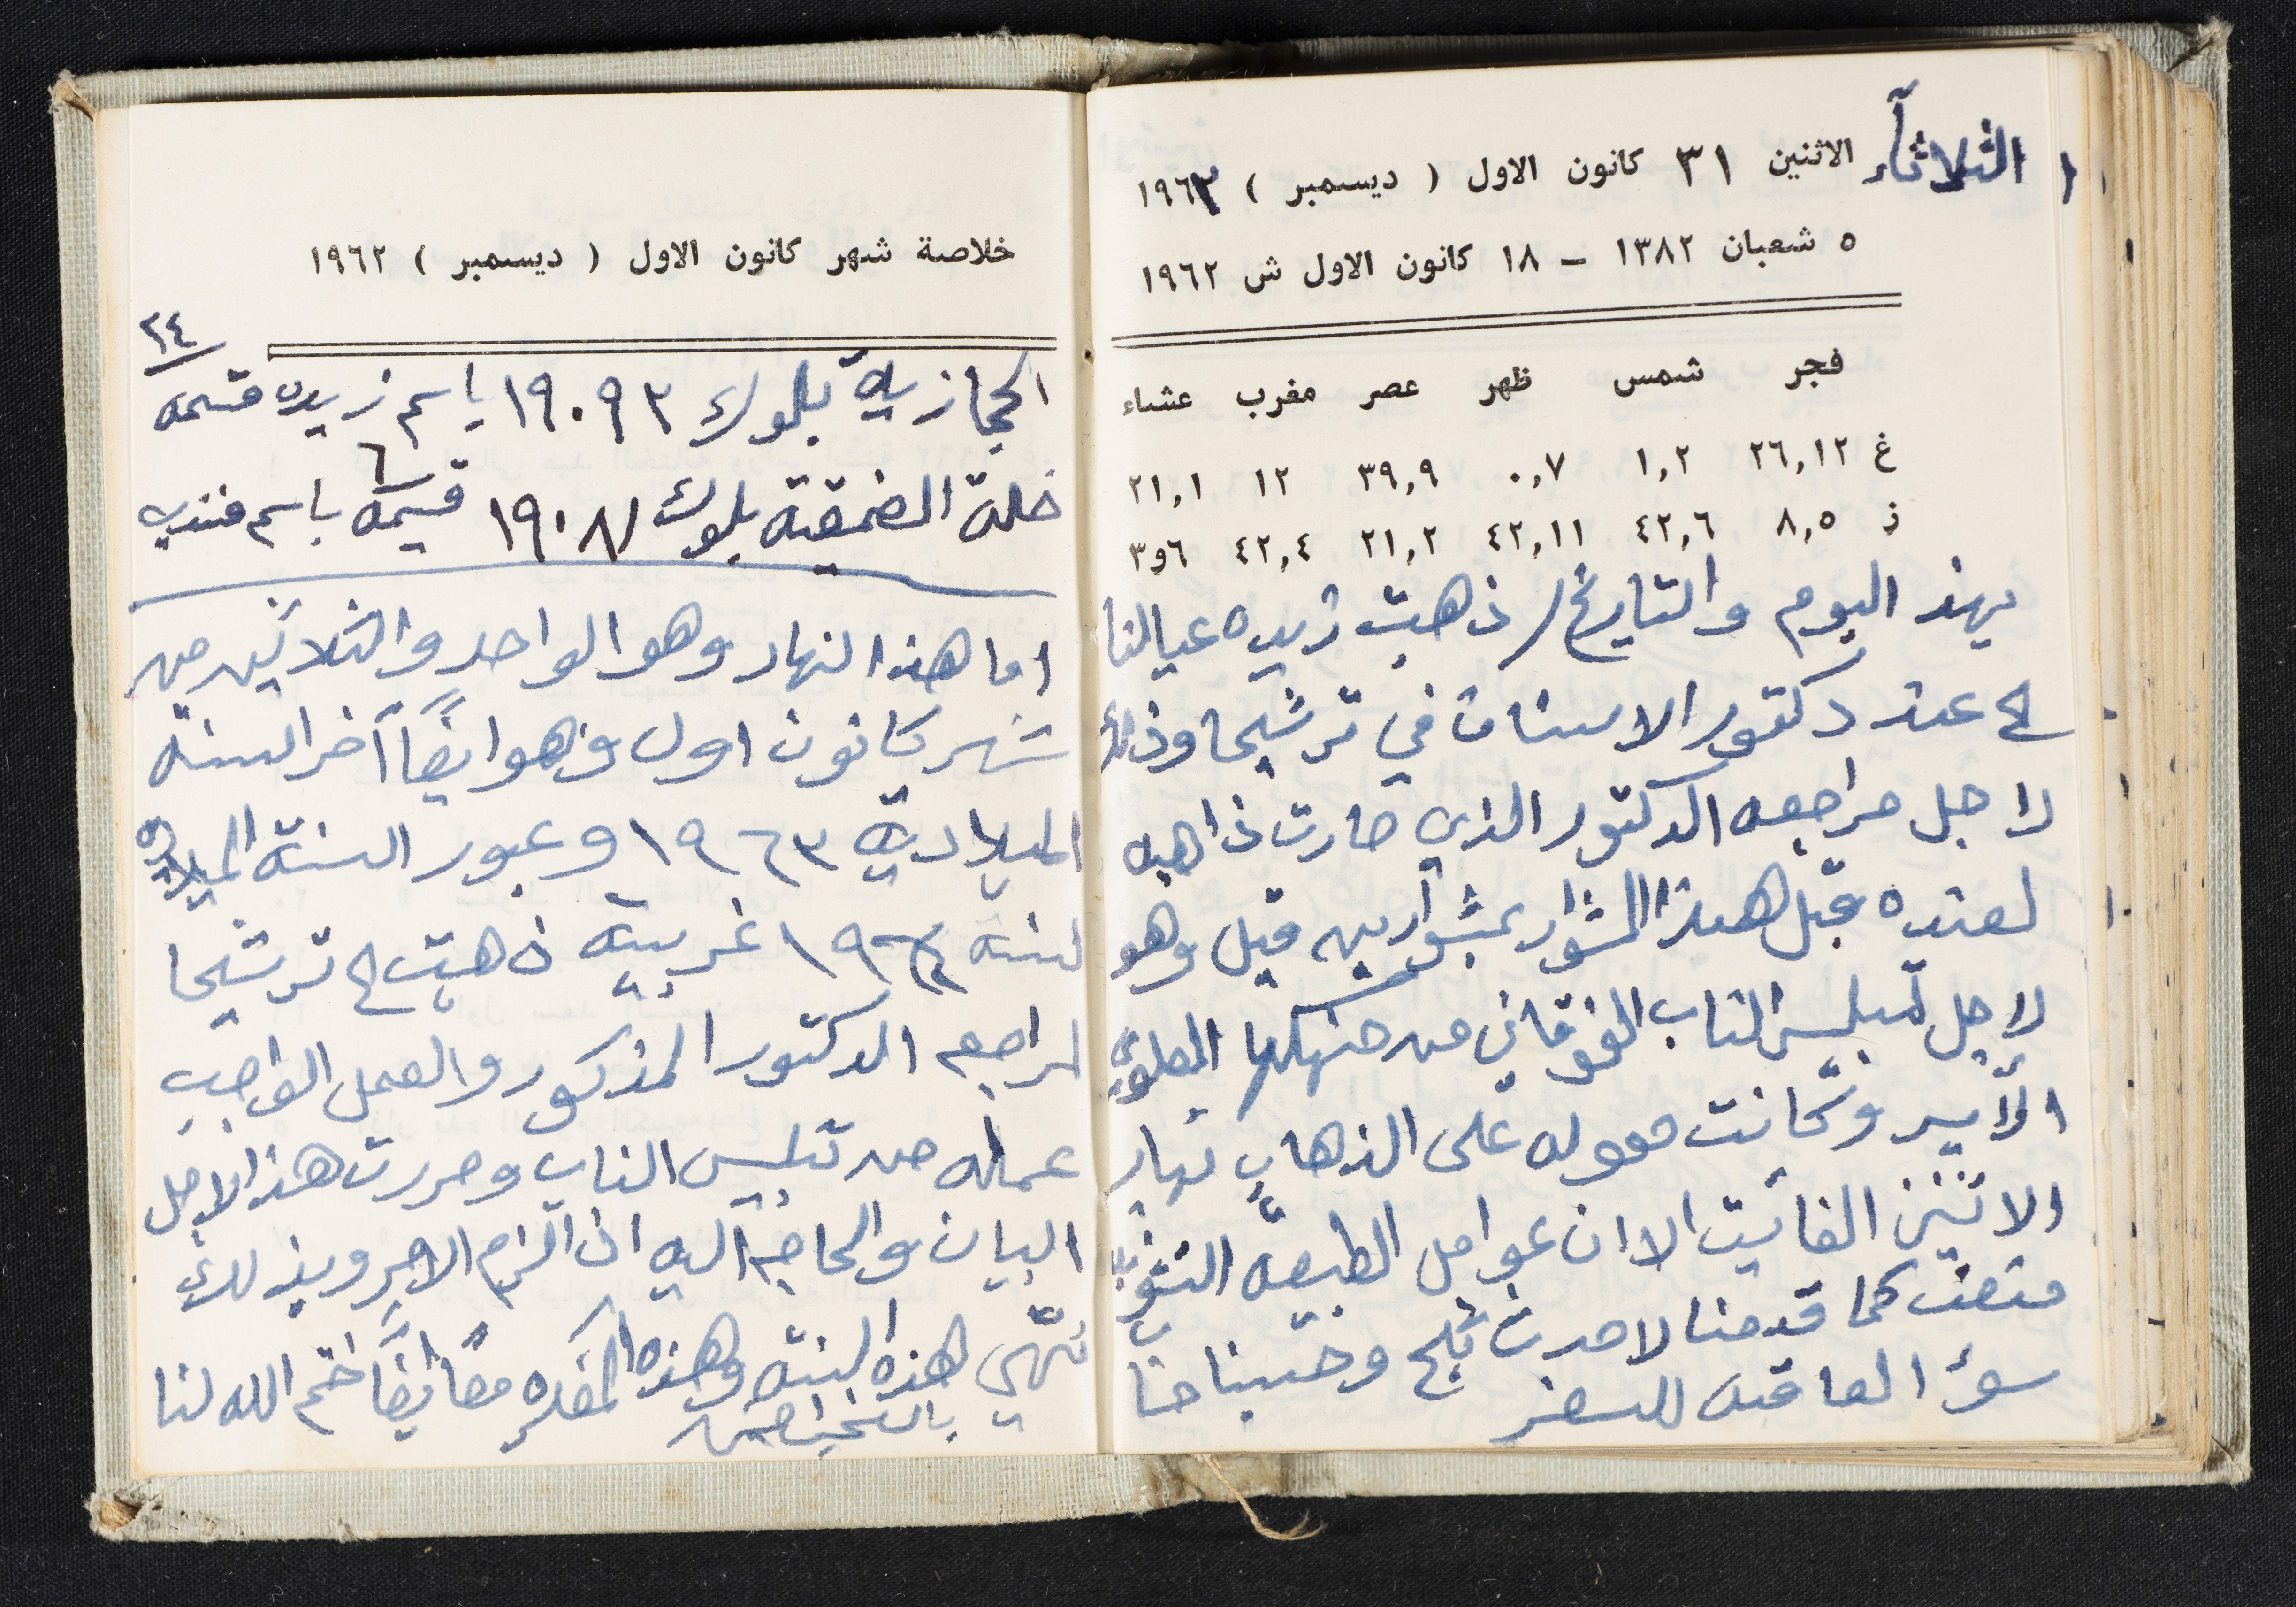 الثلاثاء الاثنين ٣١ كانون الاول ( ديسمبر ) ١٩٦٣
٥ شعبان ١٣٨٢ - ١٨ كانون الاول ش ١٩٦٢
فجر شمس ظهر عصر مغرب عشاء
غ ٢٦,١٢ ١,٢ ٠,٧ ٣٩,٩ ١٢ ٢١,١
ز ٨,٥ ٤٢,٦ ٤٢,١١ ٢١,٢ ٤٢,٤ ٦و٣
بهذ اليوم والتاريخ / ذهبت زيده عيالنا
عند دكتور الاسنان في ترشيحا وذلك
لاجل مراجعه الدكتور الذي صارت ذاهبه
لعنده قبل هذا المشوار بمشوارين قبل وهو
لاجل تلبيس الناب الفوقاني من حنكها العلوي
الأيسر وكانت معوله على الذهاب نهار
الاثنين الفائيت الا ان عوامل الطبيعه
منعت كما قدمنا لاحدث ثلج وخشينا
سوء العاقبه للسفر
خلاصة شهر كانون الاول ( ديسمبر ) ١٩٦٢
٢٤
الحجازية بلوك ١٩٠٩٣ باسم زيده قسمه
٦
خلة بلوك ١٩٠٨١ قسيمه باسم
اما هذا النهار وهو الواحد والثلاثين من
شهر كانون اول وهو ايضًا آخر السنه
الميلادية ١٩٦٣ وعبور السنة الميلادية
لسنه ١٩٦٤ غربية ذهبت ترشيحا
لمراجعه الدكتور المذكور والعمل الواجب
عمله من تلبيس الناب وحررت هذا لاجل
البيان والحاجه اليه اذا لزم الامر وبذلك
تنتهي هذه السنة وهذه المفكره معًا ايضًا ختم الله لنا